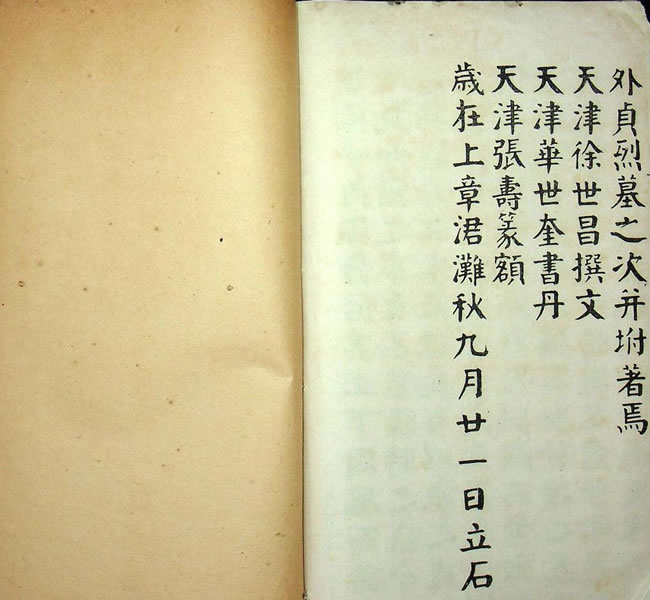 外貞烈墓之次并坿著焉
天津徐世昌撰文
天津華世奎書丹
天津張壽篆額
歲在上章涒灘秋九月廿一日立石